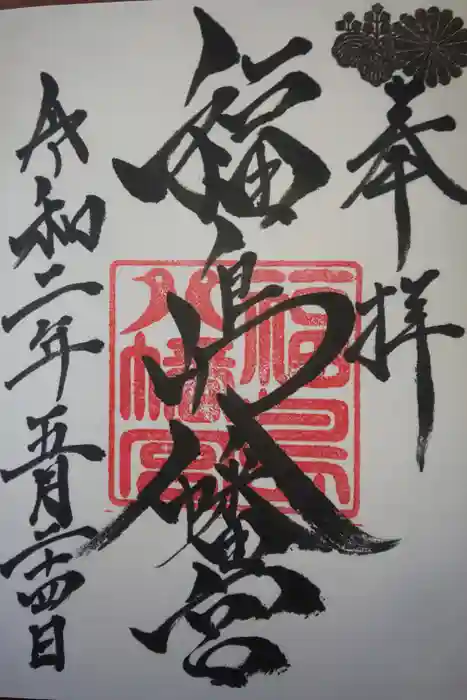 奉拝
福嶋八幡宮
福島
八幡宮
令和二年五月二十四日